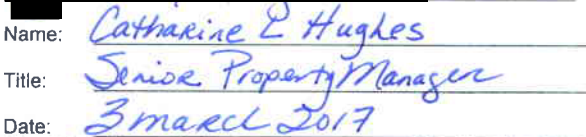 Name: Catharine L Hughes
Title: Senior Property Manager
Date: 3 march 2017